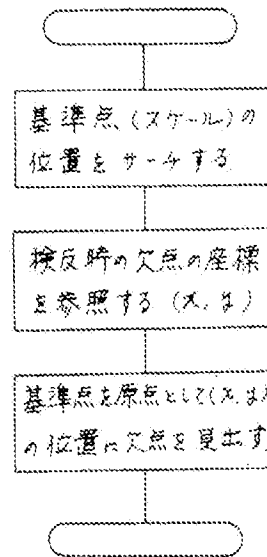 基準点(スケール)の
位置をサーチする
検反時の欠点の座標
を参照する(x, y)
基準点を原点として(x, y)
の位置に欠点を見出す